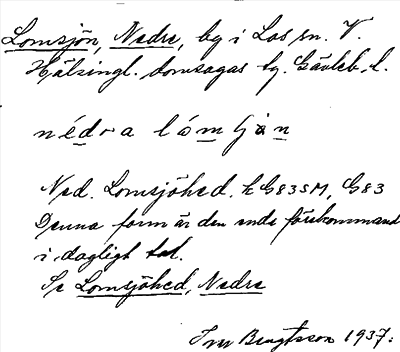 Lomsjön, Nedre, by i Los sn. V.
Hälsingl. domsagas tg. Gävleb. l.
nédra lómʃön
Ned. Lomsjöhed. k G83SM, G83
Denna form är den enda förekommand
i dagligt tal.
Se Lomsjöhed, Nedre
Ivar Bengtsson 1937.